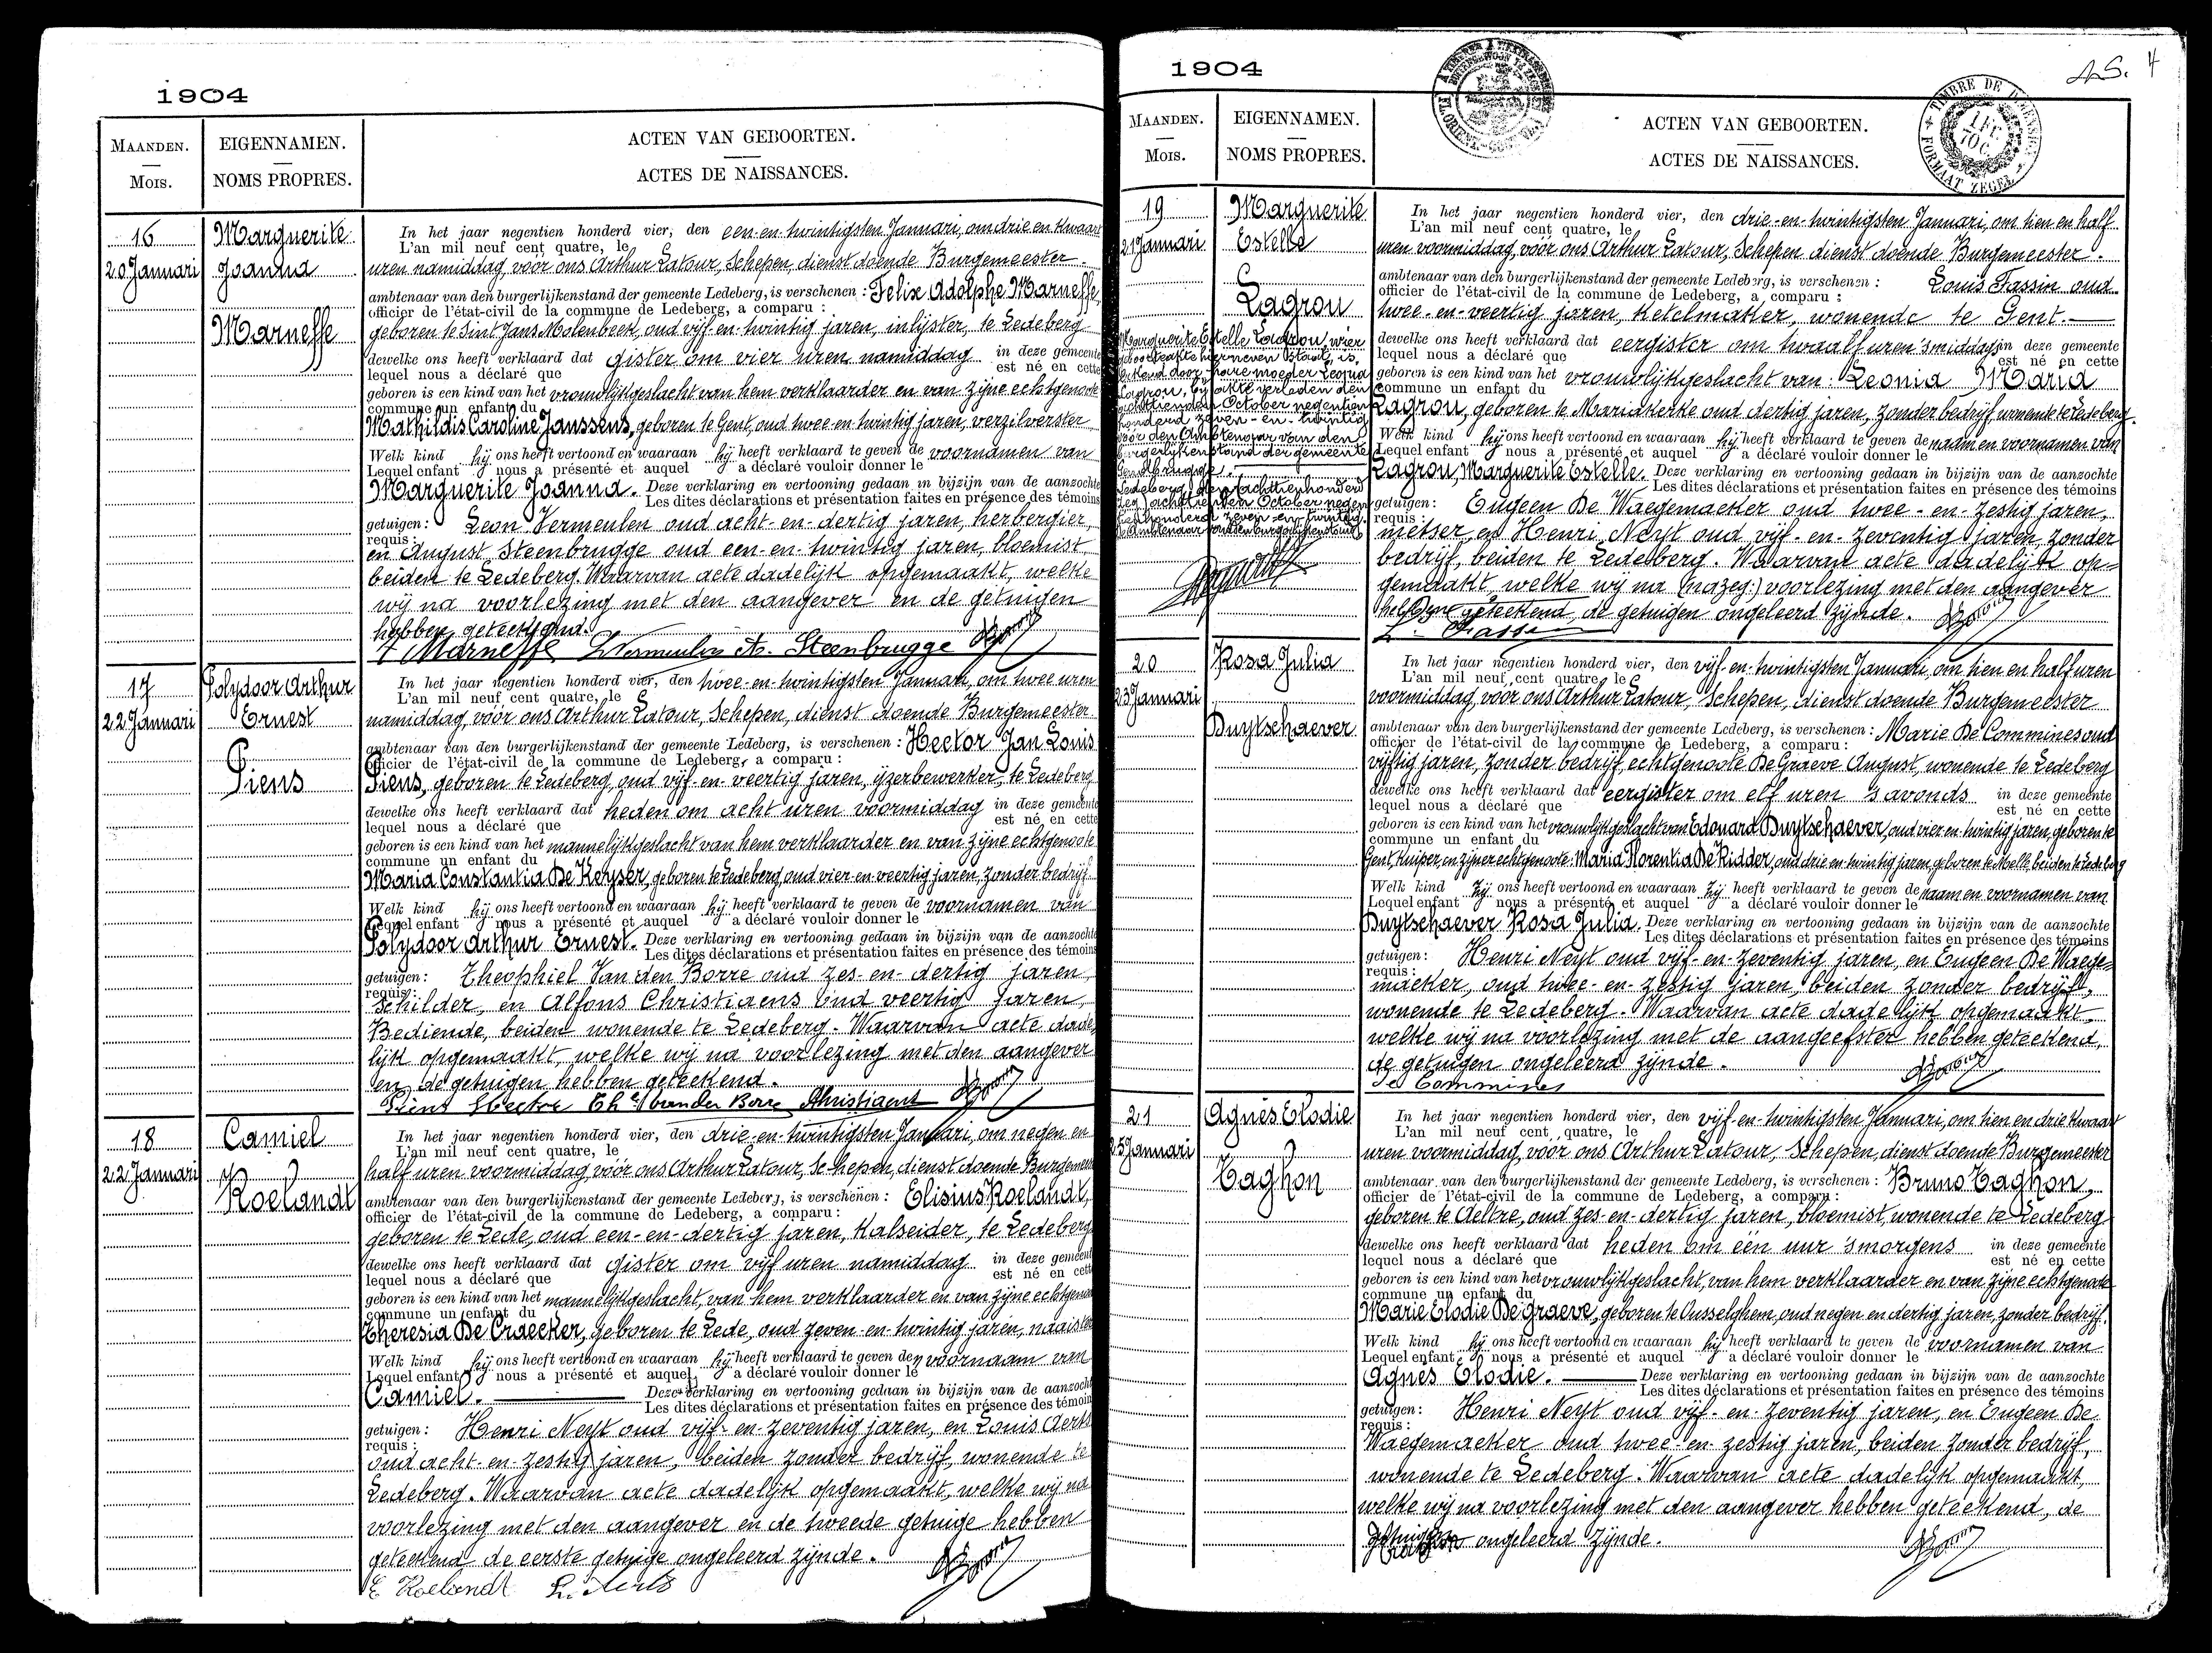 1904
MAANDEN.
Mois.
EIGENNAMEN.
NOMS PROPRES.
ACTEN VAN GEBOORTEN.
ACTES DE NAISSANCES.
16
20 Januari
Marguerite
Joanna
Marneffe
In het jaar negentien honderd vier, den een-en-twintigsten Januari, om drie en kwaart
L'an mil neuf cent quatre, le
uren namiddag, voor ons Arthur Latour, Schepen, dienst doende Burgemeester.
ambtenaar van den burgerlijkenstand der gemeente Ledeberg, is verschenen : Felix Adolphe Marneffe,
officier de l'état-civil de la commune de Ledeberg, a comparu :
geboren te Sint Jans Molenbeek, oud vijf-en-twintig jaren, inlijster, te Ledeberg
dewelke ons heeft verklaard dat gister om vier uren namiddag in deze gemeente
lequel nous a déclaré que est né en cette
geboren is een kind van het vrouwlijkgeslacht van hem verklaarder en van zijne echtgenoote
commune un enfant du
Mathildis Caroline Janssens, geboren te Gent, oud twee-en-twintig jaren, verzilverster
Welk kind hij ons heeft vertoond en waaraan hij heeft verklaard te geven de voornamen van
Lequel enfant nous a présenté et auquel a déclaré vouloir donner le
Marguerite Joanna. Deze verklaring en vertooning gedaan in bijzijn van de aanzochte
Les dites déclarations et présentation faites en présence des témoins
getuigen : Leon Vermeulen oud acht-en-dertig jaren, herbergier,
requis :
en August Steenbrugge oud een-en-twintig jaren, bloemist,
beiden te Ledeberg. Waarvan acte dadelijk opgemaakt, welke
wij na voorlezing met den aangever en de getuigen
hebben geteekend.
Marneffe L Vermeulen A. Steenbrugge
17
22 Januari
Polydoor Arthur
Ernest
Piens
In het jaar negentien honderd vier, den twee-en-twintigsten Januari, om twee uren
L'an mil neuf cent quatre, le
namiddag, voor ons Arthur Latour, Schepen, dienst doende Burgemeester
ambtenaar van den burgerlijkenstand der gemeente Ledeberg, is verschenen : Hector Jan Louis
officier de l'état-civil de la commune de Ledeberg, a comparu :
Piens, geboren te Ledeberg, oud vijf-en-veertig jaren, ijzerbewerker, te Ledeberg
dewelke ons heeft verklaard dat heden om acht uren voormiddag in deze gemeente
lequel nous a déclaré que est né en cette
geboren is een kind van het mannelijkgeslacht van hem verklaarder en van zijne echtgenoote
commune un enfant du
Maria Constantia De Keyser, geboren te Ledeberg, oud vier-en-veertig jaren, zonder bedrijf
Welk kind hij ons heeft vertoond en waaraan hij heeft verklaard te geven de voornamen van
Lequel enfant nous a présenté et auquel a déclaré vouloir donner le
Polydoor Arthur Ernest. Deze verklaring en vertooning gedaan in bijzijn van de aanzochte
Les dites déclarations et présentation faites en présence des témoins
getuigen : Theophiel Van den Borre oud zes-en-dertig jaren
requis :
schilder, en Alfons Christiaens oud veertig jaren,
Bediende, beiden wonende te Ledeberg. Waarvan acte dade-
lijk opgemaakt, welke wij na voorlezing met den aangever
en de getuigen hebben geteekend.
Piens Hector The vanden Borre AChristiaens
18
22 Januari
Camiel
Roelandt
In het jaar negentien honderd vier, den drie-en-twintigsten Januari, om negen en
L'an mil neuf cent quatre, le
half uren voormiddag, voor ons Arthur Latour, Schepen, dienst doende Burgemeester
ambtenaar van den burgerlijkenstand der gemeente Ledeberg, is verschenen : Elisius Roelandt,
officier de l'état-civil de la commune de Ledeberg, a comparu :
geboren te Lede, oud een-en-dertig jaren, Kalseider, te Ledeberg
dewelke ons heeft verklaard dat gister om vijf uren namiddag in deze gemeente
lequel nous a déclaré que est né en cette
geboren is een kind van het mannelijkgeslacht, van hem verklaarder en van zijne echtgenoote
commune un enfant du
Theresia De Craecker, geboren te Lede, oud zeven-en-twintig jaren, naaister
Welk kind hij ons heeft vertoond en waaraan hij heeft verklaard te geven den voornaam van
Lequel enfant nous a présenté et auquel a déclaré vouloir donner le
Camiel. Deze verklaring en vertooning gedaan in bijzijn van de aanzochte
Les dites déclarations et présentation faites en présence des témoins
getuigen : Henri Neyt oud vijf-en-zeventig jaren, en Louis Aerts
requis :
oud acht-en-zestig jaren, beiden zonder bedrijf, wonende te
Ledeberg. Waarvan acte dadelijk opgemaakt, welke wij na
voorlezing met den aangever en de tweede getuige hebben
geteekend de eerste getuige ongeleerd zijnde.
E Roelandt L. Aerts
1904
A.S. 4
TIMBRE DE DIMENSION
FORMAAT ZEGEL
1 FC. 70 C.
MAANDEN.
Mois.
EIGENNAMEN.
NOMS PROPRES.
ACTEN VAN GEBOORTEN.
ACTES DE NAISSANCES.
19
21 Januari
Marguerite
Estelle
Lagrou
Marguerite Estelle Lagrou, wier
geboorteakte hierneven staat, is
erkend door hare moeder Leonia
Lagrou, bij akte verleden den
achttienden October negentien
honderd zeven-en-twintig
voor den Ambtenaar van den
burgerlijkenstand der gemeente
Gendbrugge.
Ledeberg, den achttienhonderd
October negen
honderd zeven-en-twintig.
De Ambtenaar van den burgerlijkenstand,
In het jaar negentien honderd vier, den drie-en-twintigsten Januari, om tien en half
L'an mil neuf cent quatre, le
uren voormiddag, voor ons Arthur Latour, Schepen dienst doende Burgemeester.
ambtenaar van den burgerlijkenstand der gemeente Ledeberg, is verschenen : Louis Tassin oud
officier de l'état-civil de la commune de Ledeberg, a comparu :
twee-en-veertig jaren, ketelmaker, wonende te Gent.
dewelke ons heeft verklaard dat eergister om twaalf uren 's middags in deze gemeente
lequel nous a déclaré que est né en cette
geboren is een kind van het vrouwlijkgeslacht van : Leonia Maria
commune un enfant du
Lagrou, geboren te Mariakerke oud dertig jaren, zonder bedrijf, wonende te Ledeberg.
Welk kind hij ons heeft vertoond en waaraan hij heeft verklaard te geven de naam en voornamen van
Lequel enfant nous a présenté et auquel a déclaré vouloir donner le
Lagrou, Marguerite Estelle. Deze verklaring en vertooning gedaan in bijzijn van de aanzochte
Les dites déclarations et présentation faites en présence des témoins
getuigen : Eugeen De Waegemaeker oud twee-en-zestig jaren,
requis :
metser, en Henri Neyt oud vijf-en-zeventig jaren, zonder
bedrijf, beiden te Ledeberg. Waarvan acte dadelijk op-
gemaakt, welke wij na (nazeg:) voorlezing met den aangever
hebben geteekend, de getuigen ongeleerd zijnde.
L. Tassi
20
23 Januari
Rosa Julia
Duytschaever
In het jaar negentien honderd vier, den vijf-en-twintigsten Januari, om tien en half uren
L'an mil neuf cent quatre, le
voormiddag, voor ons Arthur Latour, Schepen, dienst doende Burgemeester
ambtenaar van den burgerlijkenstand der gemeente Ledeberg, is verschenen : Marie De Commines oud
officier de l'état-civil de la commune de Ledeberg, a comparu :
vijftig jaren, zonder bedrijf, echtgenoote De Graeve August, wonende te Ledeberg
dewelke ons heeft verklaard dat eergister om elf uren 's avonds in deze gemeente
lequel nous a déclaré que est né en cette
geboren is een kind van het vrouwlijkgeslacht van Edouard Duytschaever, oud vier-en-twintig jaren, geboren te
commune un enfant du
Gent, kuiper, en zijner echtgenoote Maria Florentia De Ridder, oud drie-en-twintig jaren, geboren te Melle, beiden te Ledeberg
Welk kind zij ons heeft vertoond en waaraan zij heeft verklaard te geven de naam en voornamen van
Lequel enfant nous a présenté et auquel a déclaré vouloir donner le
Duytschaever Rosa Julia. Deze verklaring en vertooning gedaan in bijzijn van de aanzochte
Les dites déclarations et présentation faites en présence des témoins
getuigen : Henri Neyt oud vijf-en-zeventig jaren, en Eugeen De Waege-
requis :
maeker, oud twee-en-zestig jaren, beiden zonder bedrijf,
wonende te Ledeberg. Waarvan acte dadelijk opgemaakt,
welke wij na voorlezing met de aangeefster hebben geteekend,
de getuigen ongeleerd zijnde.
De Commines
21
25 Januari
Agnès Elodie
Taghon
In het jaar negentien honderd vier, den vijf-en-twintigsten Januari, om tien en drie kwaart
L'an mil neuf cent quatre, le
uren voormiddag, voor ons Arthur Latour, Schepen, dienst doende Burgemeester
ambtenaar van den burgerlijkenstand der gemeente Ledeberg, is verschenen : Bruno Taghon,
officier de l'état-civil de la commune de Ledeberg, a comparu :
geboren te Aeltre, oud zes-en-dertig jaren, bloemist, wonende te Ledeberg
dewelke ons heeft verklaard dat heden om één uur 's morgens in deze gemeente
lequel nous a déclaré que est né en cette
geboren is een kind van het vrouwlijkgeslacht, van hem verklaarder en van zijne echtgenoote
commune un enfant du
Marie Elodie De Graeve, geboren te Ousselghem, oud negen en dertig jaren, zonder bedrijf.
Welk kind hij ons heeft vertoond en waaraan hij heeft verklaard te geven de voornamen van
Lequel enfant nous a présenté et auquel a déclaré vouloir donner le
Agnès Elodie. Deze verklaring en vertooning gedaan in bijzijn van de aanzochte
Les dites déclarations et présentation faites en présence des témoins
getuigen : Henri Neyt oud vijf-en-zeventig jaren, en Eugeen De
requis :
Waegemaeker oud twee-en-zestig jaren, beiden zonder bedrijf,
wonende te Ledeberg. Waarvan acte dadelijk opgemaakt,
welke wij na voorlezing met den aangever hebben geteekend, de
getuigen ongeleerd zijnde.